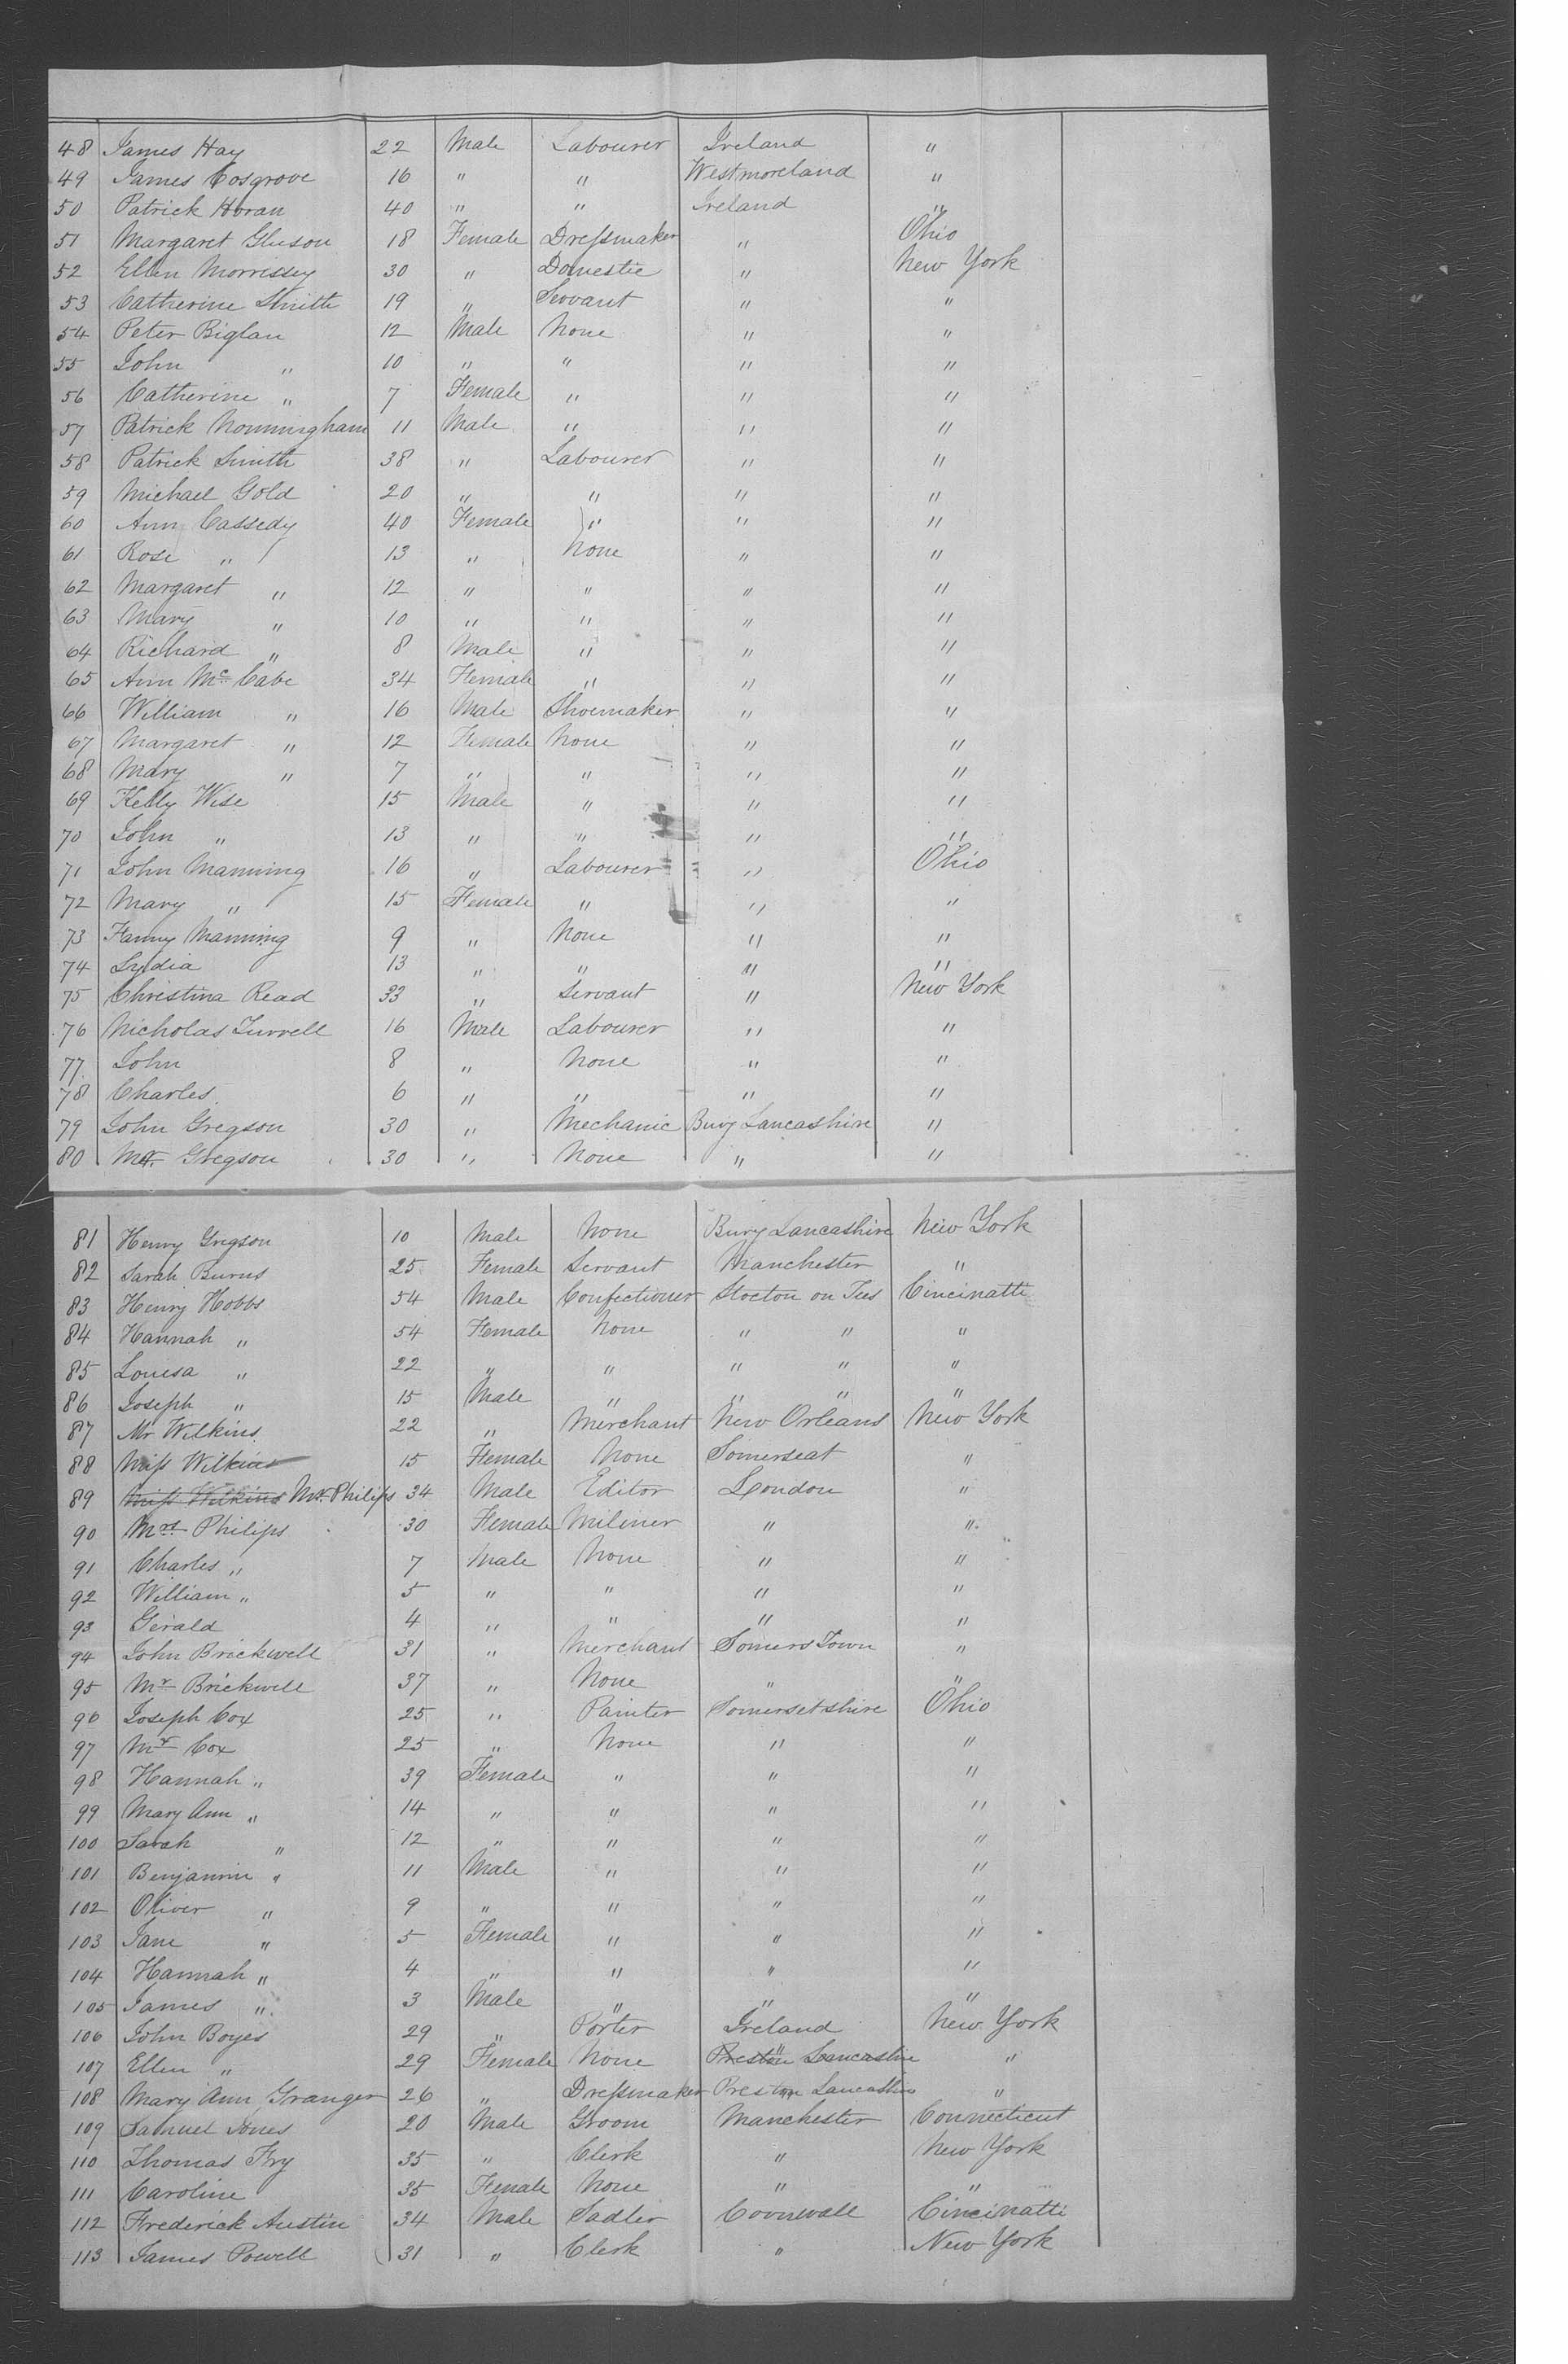 48 James Hay 22 Male Labourer Ireland "
49 James Cosgrove 16 " " Westmoreland "
50 Patrick Horan 40 " " Ireland "
51 Margaret Gleeson 18 Female Dressmaker " Ohio
52 Ellen Morrissey 30 " Domestic " New York
53 Catherine Smith 19 " Servant " "
54 Peter Biglan 12 Male None " "
55 John " 10 " " " "
56 Catherine " 7 Female " " "
57 Patrick Nonningham 11 Male " " "
58 Patrick Smith 38 " Labourer " "
59 Michael Gold 20 " " " "
60 Ann Cassedy 40 Female " " "
61 Rose " 13 " None " "
62 Margaret " 12 " " " "
63 Mary " 10 " " " "
64 Richard " 8 Male " " "
65 Ann Mc Cabe 34 Female " " "
66 William " 16 Male Shoemaker " "
67 Margaret " 12 Female None " "
68 Mary " 7 " " " "
69 Kelly Wise 15 Male " " "
70 John " 13 " " " "
71 John Manning 16 " Labourer " Ohio
72 Mary " 15 Female " " "
73 Fanny Manning 9 " None " "
74 Lydia 13 " " " "
75 Christina Read 33 " Servant " New York
76 Nicholas Turrell 16 Male Labourer " "
77 John 8 " None " "
78 Charles 6 " " " "
79 John Gregson 30 " Mechanic Bury Lancashire "
80 Mr. Gregson 30 " None " "
81 Henry Gregson 10 Male None Bury Lancashire New York
82 Sarah Burns 25 Female Servant Manchester "
83 Henry Hobbs 54 Male Confectioner Stocton on Tees Cincinatti
84 Hannah " 54 Female None " " "
85 Louisa " 22 " " " " "
86 Joseph " 15 Male " " " "
87 Mr Wilkins 22 " Merchant New Orleans New York
88 Miss Wilkins 15 Female None Somerseat "
89 Miss Wilkins Mr. Philips 34 Male Editor London "
90 Mrs Philips 30 Female Miliner " "
91 Charles " 7 Male None " "
92 William " 5 " " " "
93 Gerald 4 " " " "
94 John Brickwell 31 " Merchant Somers Town "
95 Mr Brickwell 37 " None " "
96 Joseph Cox 25 " Painter Somersetshire Ohio
97 Mr Cox 25 " None " "
98 Hannah " 39 Female " " "
99 Mary Ann " 14 " " " "
100 Sarah " 12 " " " "
101 Benjamin " 11 Male " " "
102 Oliver " 9 " " " "
103 Jane " 5 Female " " "
104 Hannah " 4 " " " "
105 James " 3 Male " " "
106 John Boyes 29 " Porter Ireland New York
107 Ellen " 29 Female None Preston Lancashire " "
108 Mary Ann Granger 26 " Dressmaker Preston Lancashire "
109 Samuel Jones 20 Male Groom Manchester Connecticut
110 Thomas Fry 35 " Clerk " New York
111 Caroline 35 Female None " "
112 Frederick Austin 34 Male Sadler Cornwall Cincinatti
113 James Powell 31 " Clerk " New York